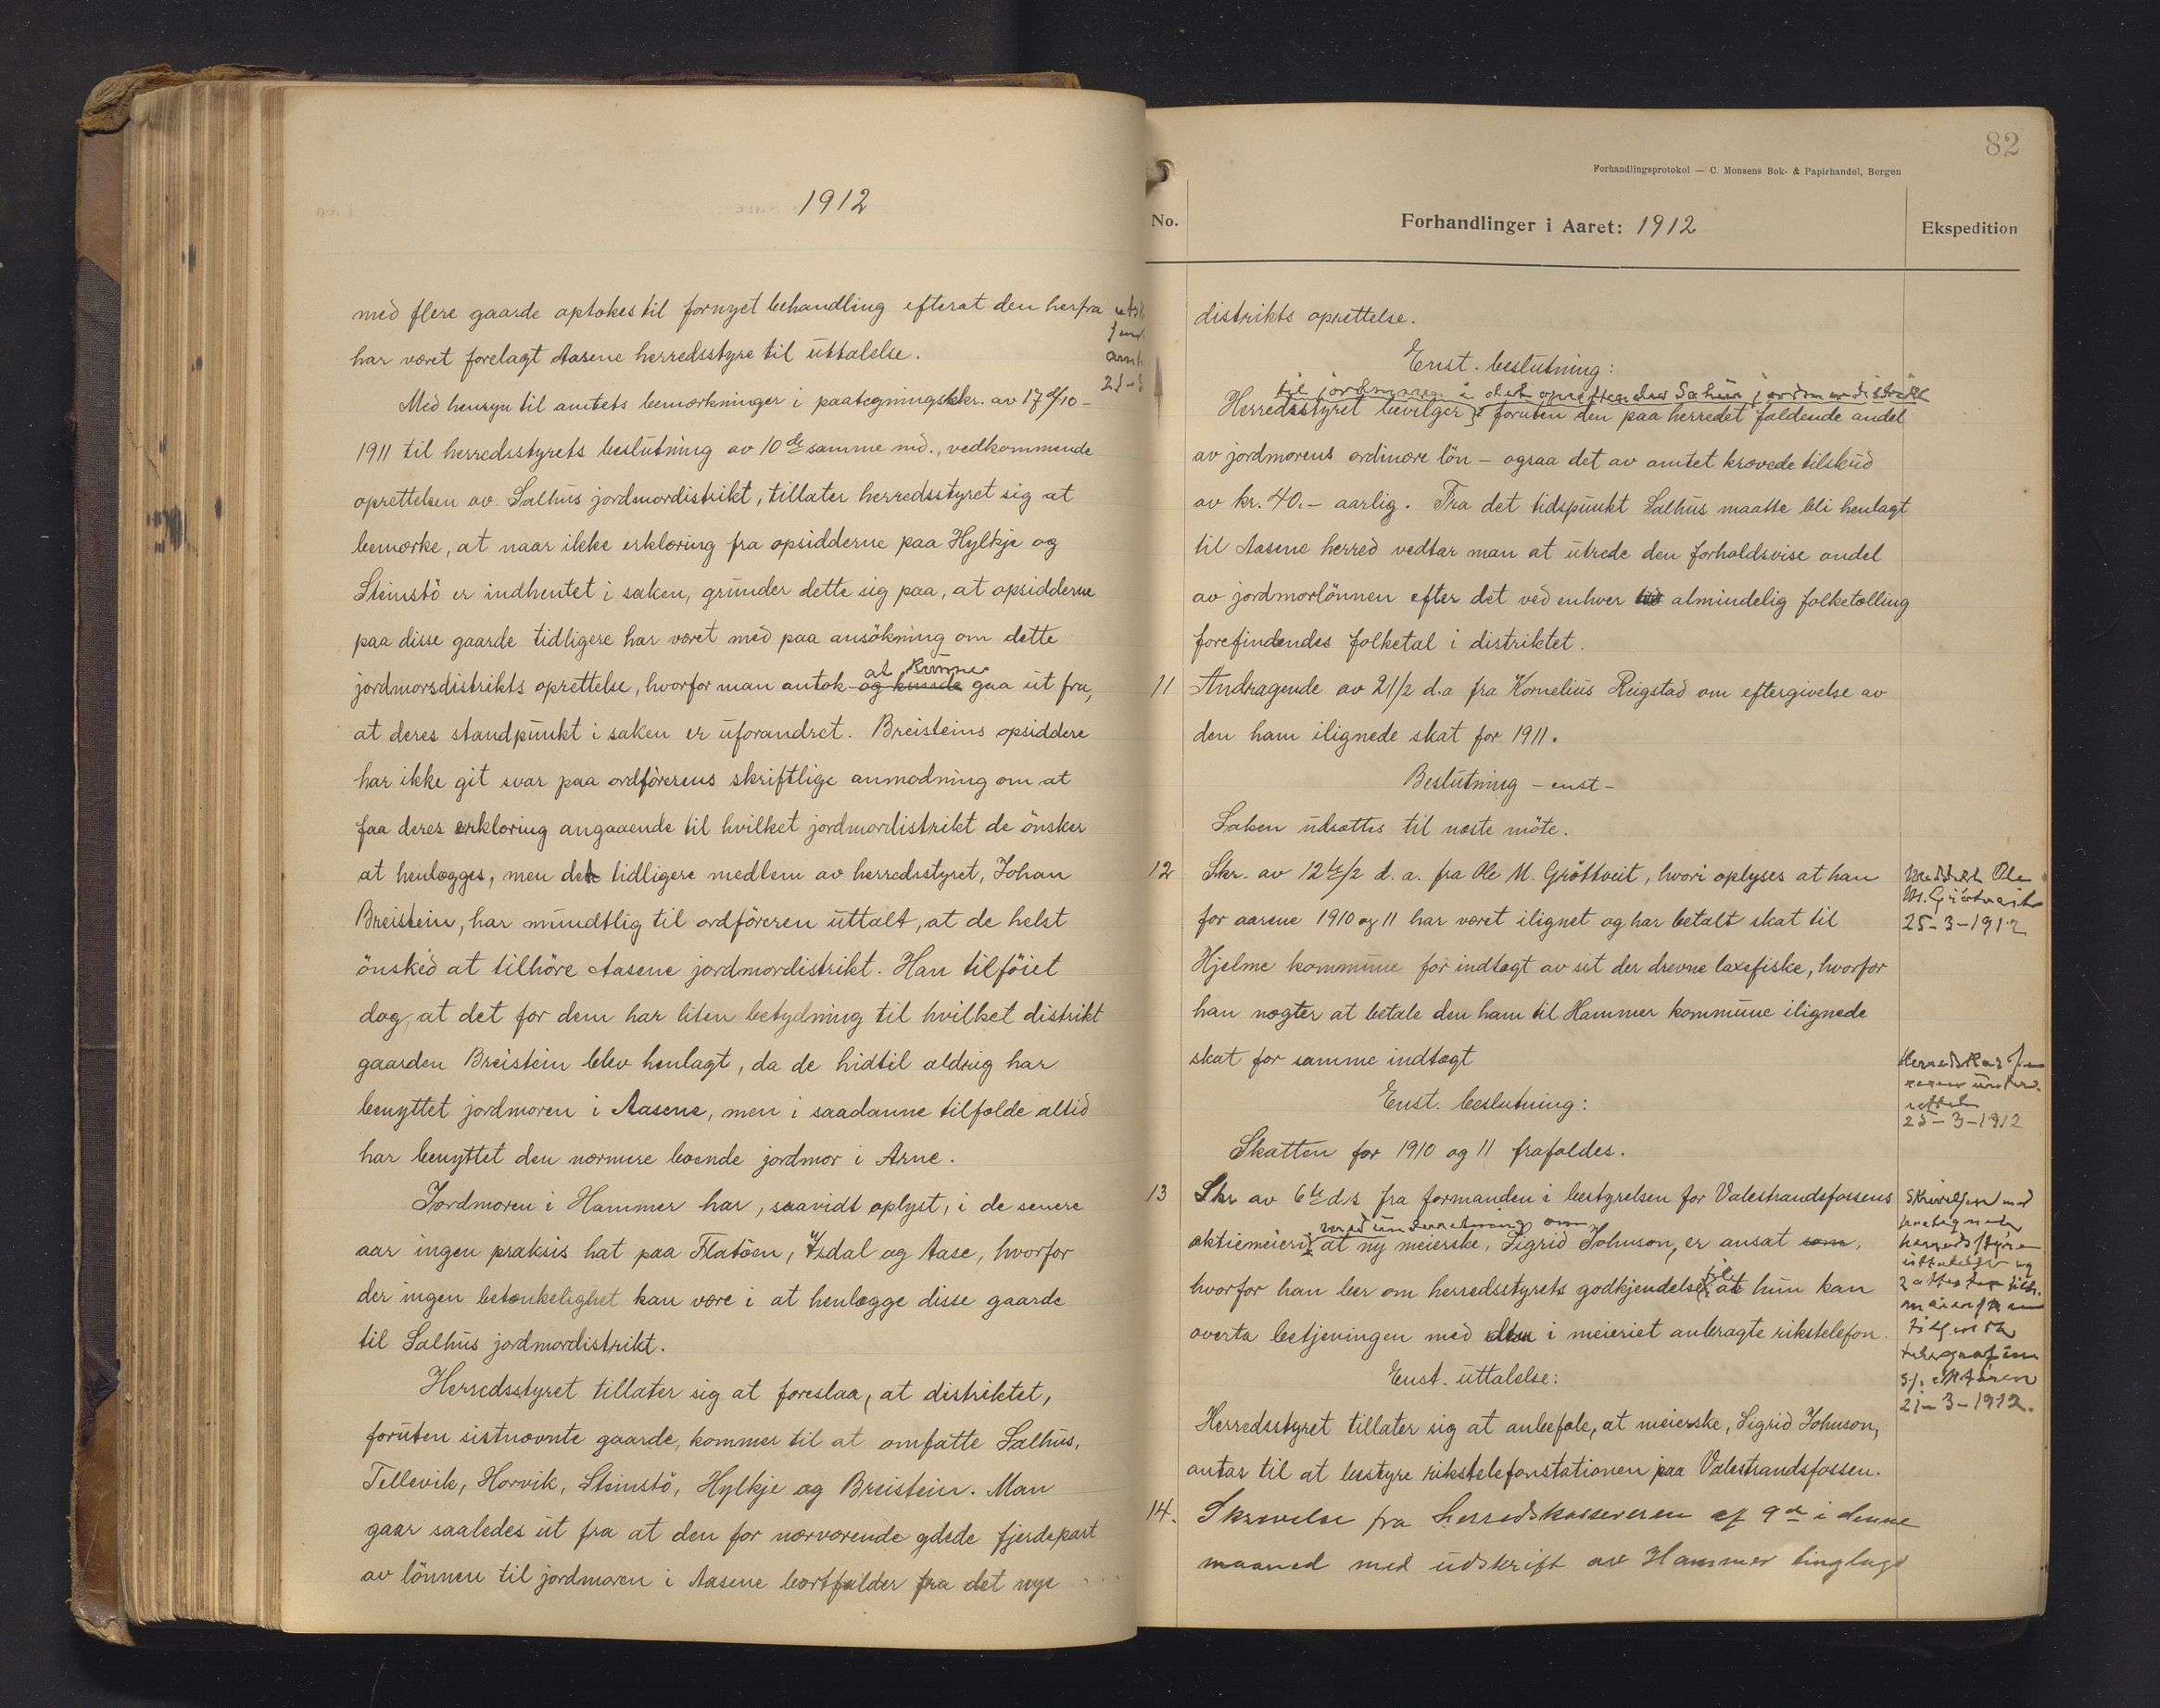 1912
med flere gaarde optokes til fornyet behandling efterat den herfra
har været forelagt Aasene herredsstyre til uttalelse.
Med hensyn til amtets bemærkninger i paategningsskr. av 17 d/10 –
1911 til herredsstyrets beslutning av 10de samme md., vedkommende
oprettelsen av Salhus jordmordistrikt, tillater herredsstyret sig at
bemærke, at naar ikke erklæring fra opsidderne paa Hylkje og
Steinstö er indhentet i saken, grunder dette sig paa, at opsidderne
paa disse gaarde tidligere har været med paa ansökning om dette
jordmorsdistrikts oprettelse, hvorfor man antok at kunne gaa ut fra,
at deres standpunkt i saken er uforandret. Breisteins opsiddere
har ikke git svar paa ordförerens skriftlige anmodning om at
faa deres erklæring angaaende til hvilket jordmordistrikt de önsker
at henlægges, men det tidligere medlem av herredsstyret, Johan
Breistein, har mundtlig til ordföreren uttalt, at de helst
önsked at tilhöre Aasene jordmordistrikt. Han tilföiet
dog, at det for dem har liten betydning til hvilket distrikt
gaarden Breistein blev henlagt, da de hidtil aldrig har
benyttet jordmoren i Aasene, men i saadanne tilfælde altid
har benyttet den nærmere boende jordmor i Arne.
Jordmoren i Hammer har, saavidt oplyst, i de senere
aar ingen praksis hat paa Flatöen, Ysdal og Aase, hvorfor
der ingen betænkelighet kan være i at henlægge disse gaarde
til Salhus jordmordistrikt.
Herredsstyret tillater sig at foreslaa, at distriktet,
foruten sistnævnte gaarde, kommer til at omfatte Salhus,
Tellevik, Horvik, Steinstö, Hylkje og Breistein. Man
gaar saaledes ut fra at den for nærværende gdede fjerdepart
av lönnen til jordmoren i Aasene bortfalder fra det nye
82
Forhandlingsprotokol — C. Monsens Bok- & Papirhandel, Bergen
No.
Forhandlinger i Aaret: 1912
Ekspedition
distrikts oprettelse.
Enst. beslutning:
til jordmoren i det oprettendes Salhus jordmordistrikt
Herredsstyret bevilger foruten den paa herredet faldende andel
av jordmorens ordinære lön – ogsaa det av amtet krævede tilskud
av kr. 40.– aarlig. Fra det tidspunkt Salhus maatte bli henlagt
til Aasene herred vedtar man at utrede den forholdsvise andel
av jordmorlönnen efter det ved enhver almindelig folketælling
forefindendes folketal i distriktet.
11 Andragende av 21/2 d.a fra Kornelius Reigstad om eftergivelse av
den ham ilignede skat for 1911.
Beslutning – enst –
Saken udsættes til næste möte.
12 Skr. av 12te/2 d. a. fra Ole M. Gröttveit, hvori oplyses at han
for aarene 1910 og 11 har været ilignet og har betalt skat til
Hjelme kommune for indtægt av sit der drevne laxefiske, hvorfor
han nægter at betale den ham til Hammer kommune ilignede
skat for samme indtægt
Meddelt Ole
M. Grötveit
25–3–1912
Enst. beslutning:
Skatten for 1910 og 11 frafaldes.
25–3–1912
13 Skr av 6te d.s fra formanden i bestyrelsen for Valestrandsfossens
med underretning om
aktiemeieri at ny meierske, Sigrid Johnson, er ansat som,
hvorfor han ber om herredsstyrets godkjendelse til at hun kan
overta betjeningen med den i meieriet anbragte rikstelefon.
Enst. uttalelse:
Herredsstyret tillater sig at anbefale, at meierske, Sigrid Johnson,
antas til at bestyre rikstelefonstationen paa Valestrandsfossen.
Skrivelsen med
paategnede
herredsstyre
uttalelse og
2 attester tilh.
meiersken
tilsendt
telegrafin
spektören
21–3–1912.
14. Skrivelse fra herredskassereren af 9de i denne
maaned med udskrift av Hammer tinglags